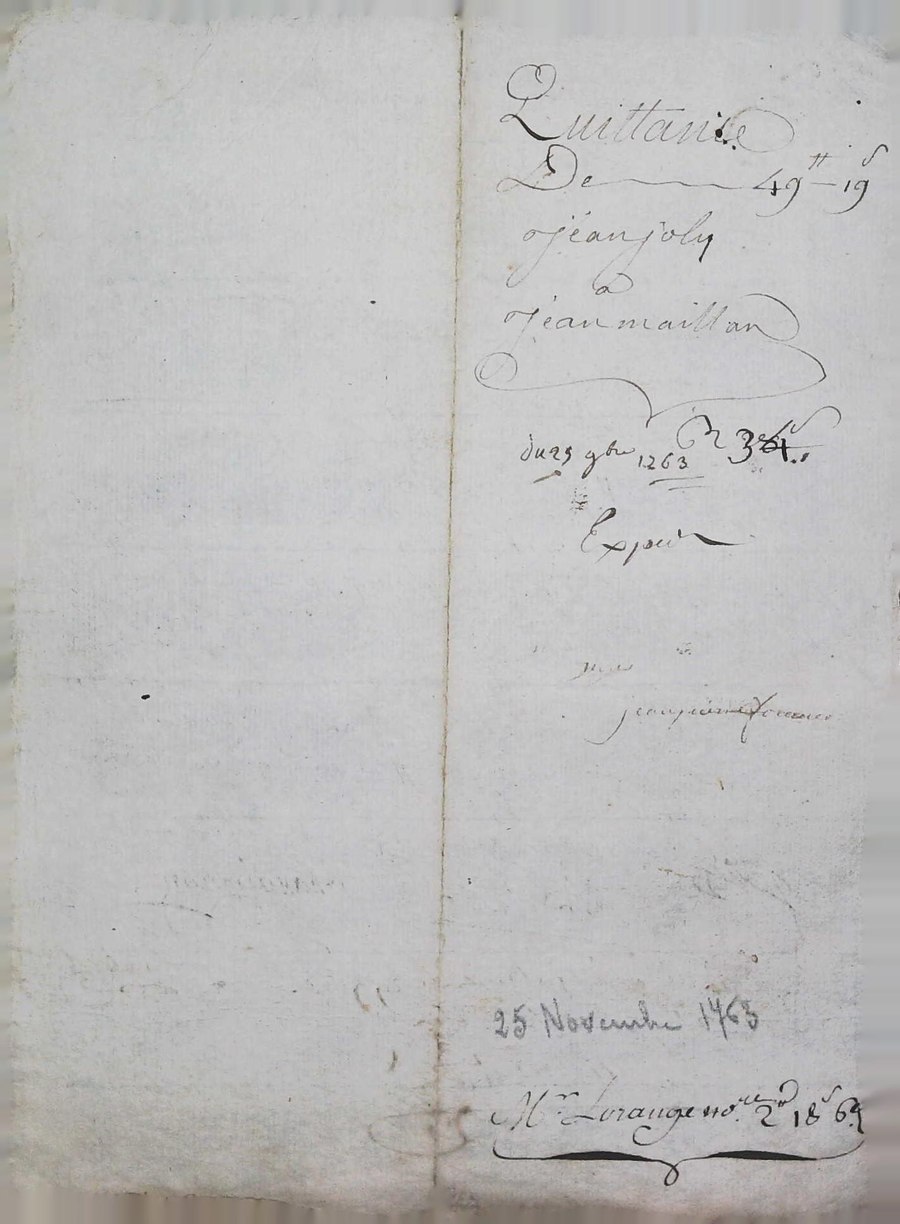 Quittance
De 49 ₶ 19 s
jéan joly
a
jéan maillan
du 25 9bre 1763
Expédi
jean pierre
25 Novembre 1763
Mr Lorange no.re 2 ₶ 18 s 6 d